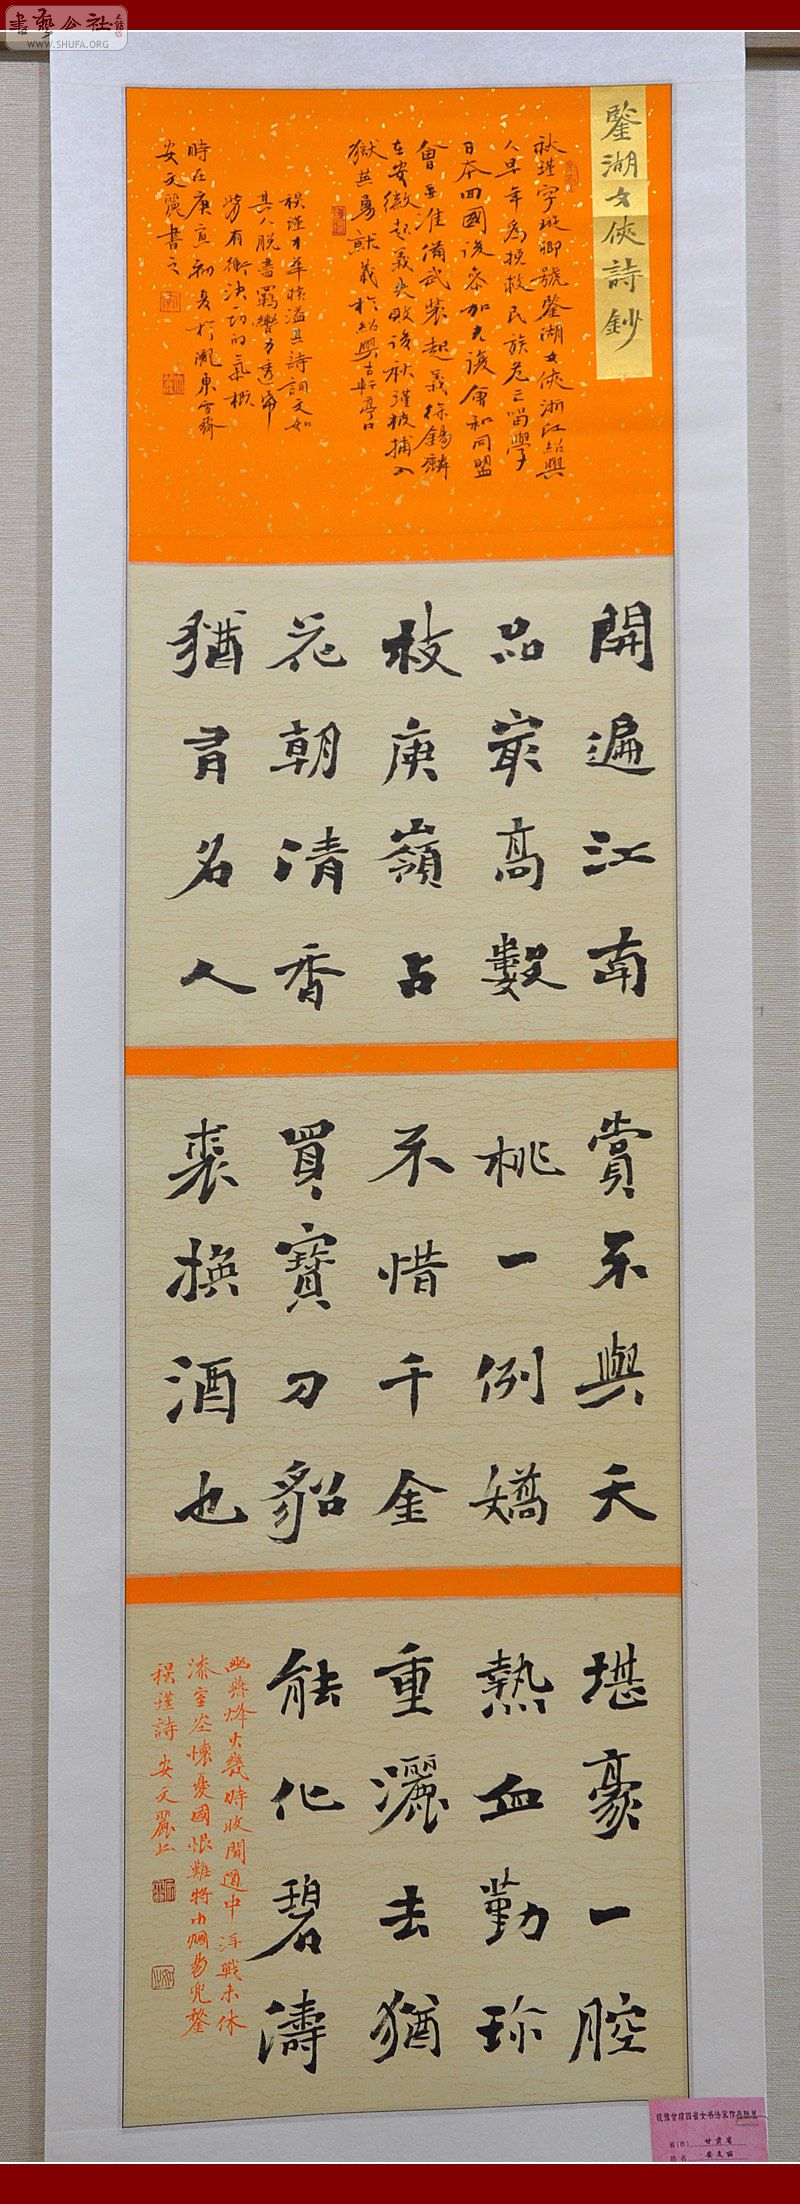 書藝公社
WWW.SHUFA.ORG
鑒湖女俠詩鈔
秋瑾字璇卿號鑒湖女俠浙江紹興
人早年為挽救民族危亡留學
日本回國後參加光復會和同盟
會再準備武裝起義徐錫麟
在安徽起義失敗後秋瑾被捕入
獄英勇獻義於紹興古軒亭口
秋瑾才華橫溢其詩詞文如
其人脫盡羈力透紙
背有衝決一切的氣概
時在庚寅初夏於隴東雪齋
安文麗書之
開遍江南
品最高數
枝庾嶺占
花朝清香
猶有名人
賞不與天
桃一例嬌
不惜千金
買寶刀貂
裘換酒也
堪豪一腔
熱血勤珍
重灑去猶
能化碧濤
幽燕烽火幾時收聞道中洋戰未休
漆室空懷憂國恨難將巾幗易兜鍪
秋瑾詩安文麗書
皖豫甘琼四省女书法家作品联展
省(市) 甘肃省
姓名 安文丽